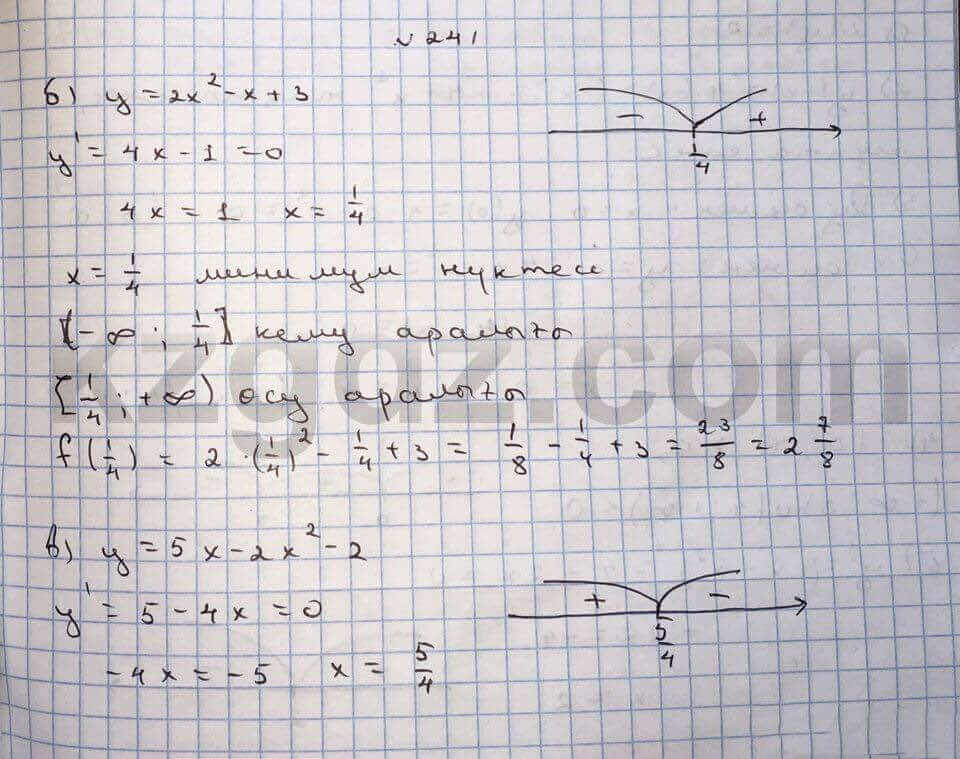 № 241
б) y = 2x² - x + 3
- +
1/4
y' = 4x - 1 = 0
4x = 1 x = 1/4
x = 1/4 минимум нүктесі
[-∞ ; 1/4] кему аралығы
[1/4 ; +∞) өсу аралығы
f(1/4) = 2 · (1/4)² - 1/4 + 3 = 1/8 - 1/4 + 3 = 23/8 = 2 7/8
в) y = 5x - 2x² - 2
+ -
5/4
y' = 5 - 4x = 0
-4x = -5 x = 5/4
kzgdz.com